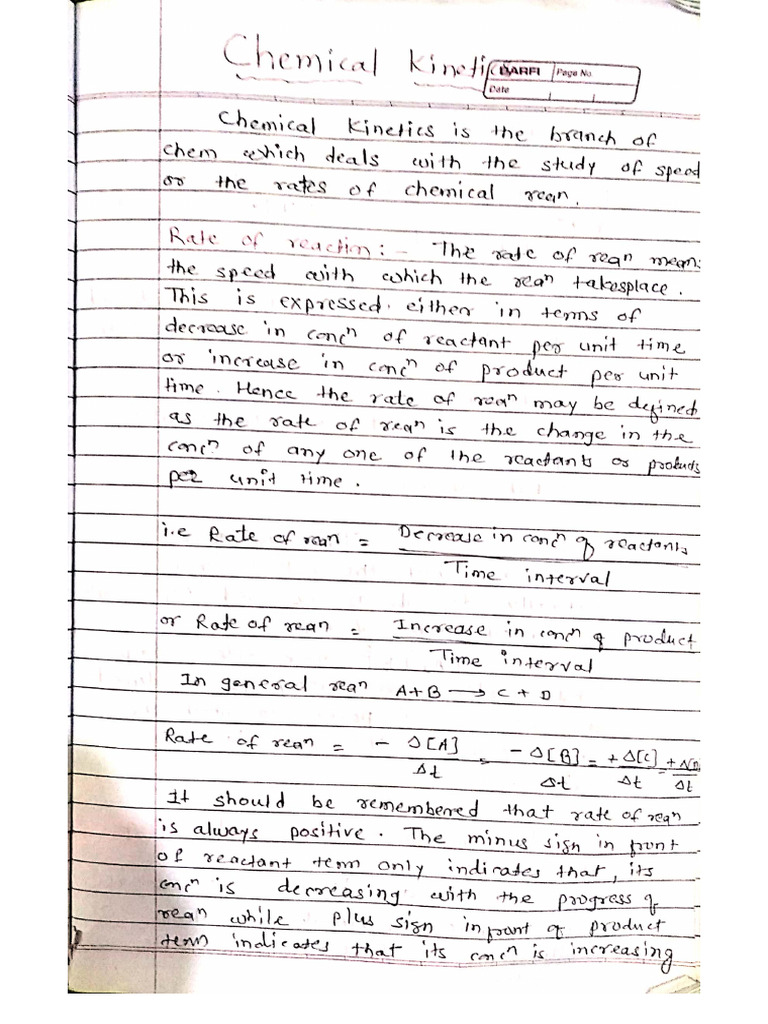 Chemical Kinetics
DARFI Page No.
Date
Chemical Kinetics is the branch of
chem which deals with the study of speed
or the rates of chemical reaⁿ.
Rate of reaction :- The rate of reaⁿ mean:
the speed with which the reaⁿ takesplace.
This is expressed either in terms of
decrease in concⁿ of reactant per unit time
or increase in concⁿ of product per unit
time. Hence the rate of reaⁿ may be defined
as the rate of reaⁿ is the change in the
concⁿ of any one of the reactants or products
per unit time.
i.e Rate of reaⁿ = Decrease in concⁿ of reactants
Time interval
or Rate of reaⁿ = Increase in concⁿ of product
Time interval
In general reaⁿ A+B ⟶ C + D
Rate of reaⁿ = - Δ[A]/Δt = - Δ[B]/Δt = + Δ[C]/Δt = + Δ[D]/Δt
It should be remembered that rate of reaⁿ
is always positive. The minus sign in front
of reactant term only indicates that, its
concⁿ is decreasing with the progress of
reaⁿ while plus sign infront of product
term indicates that its concⁿ is increasing